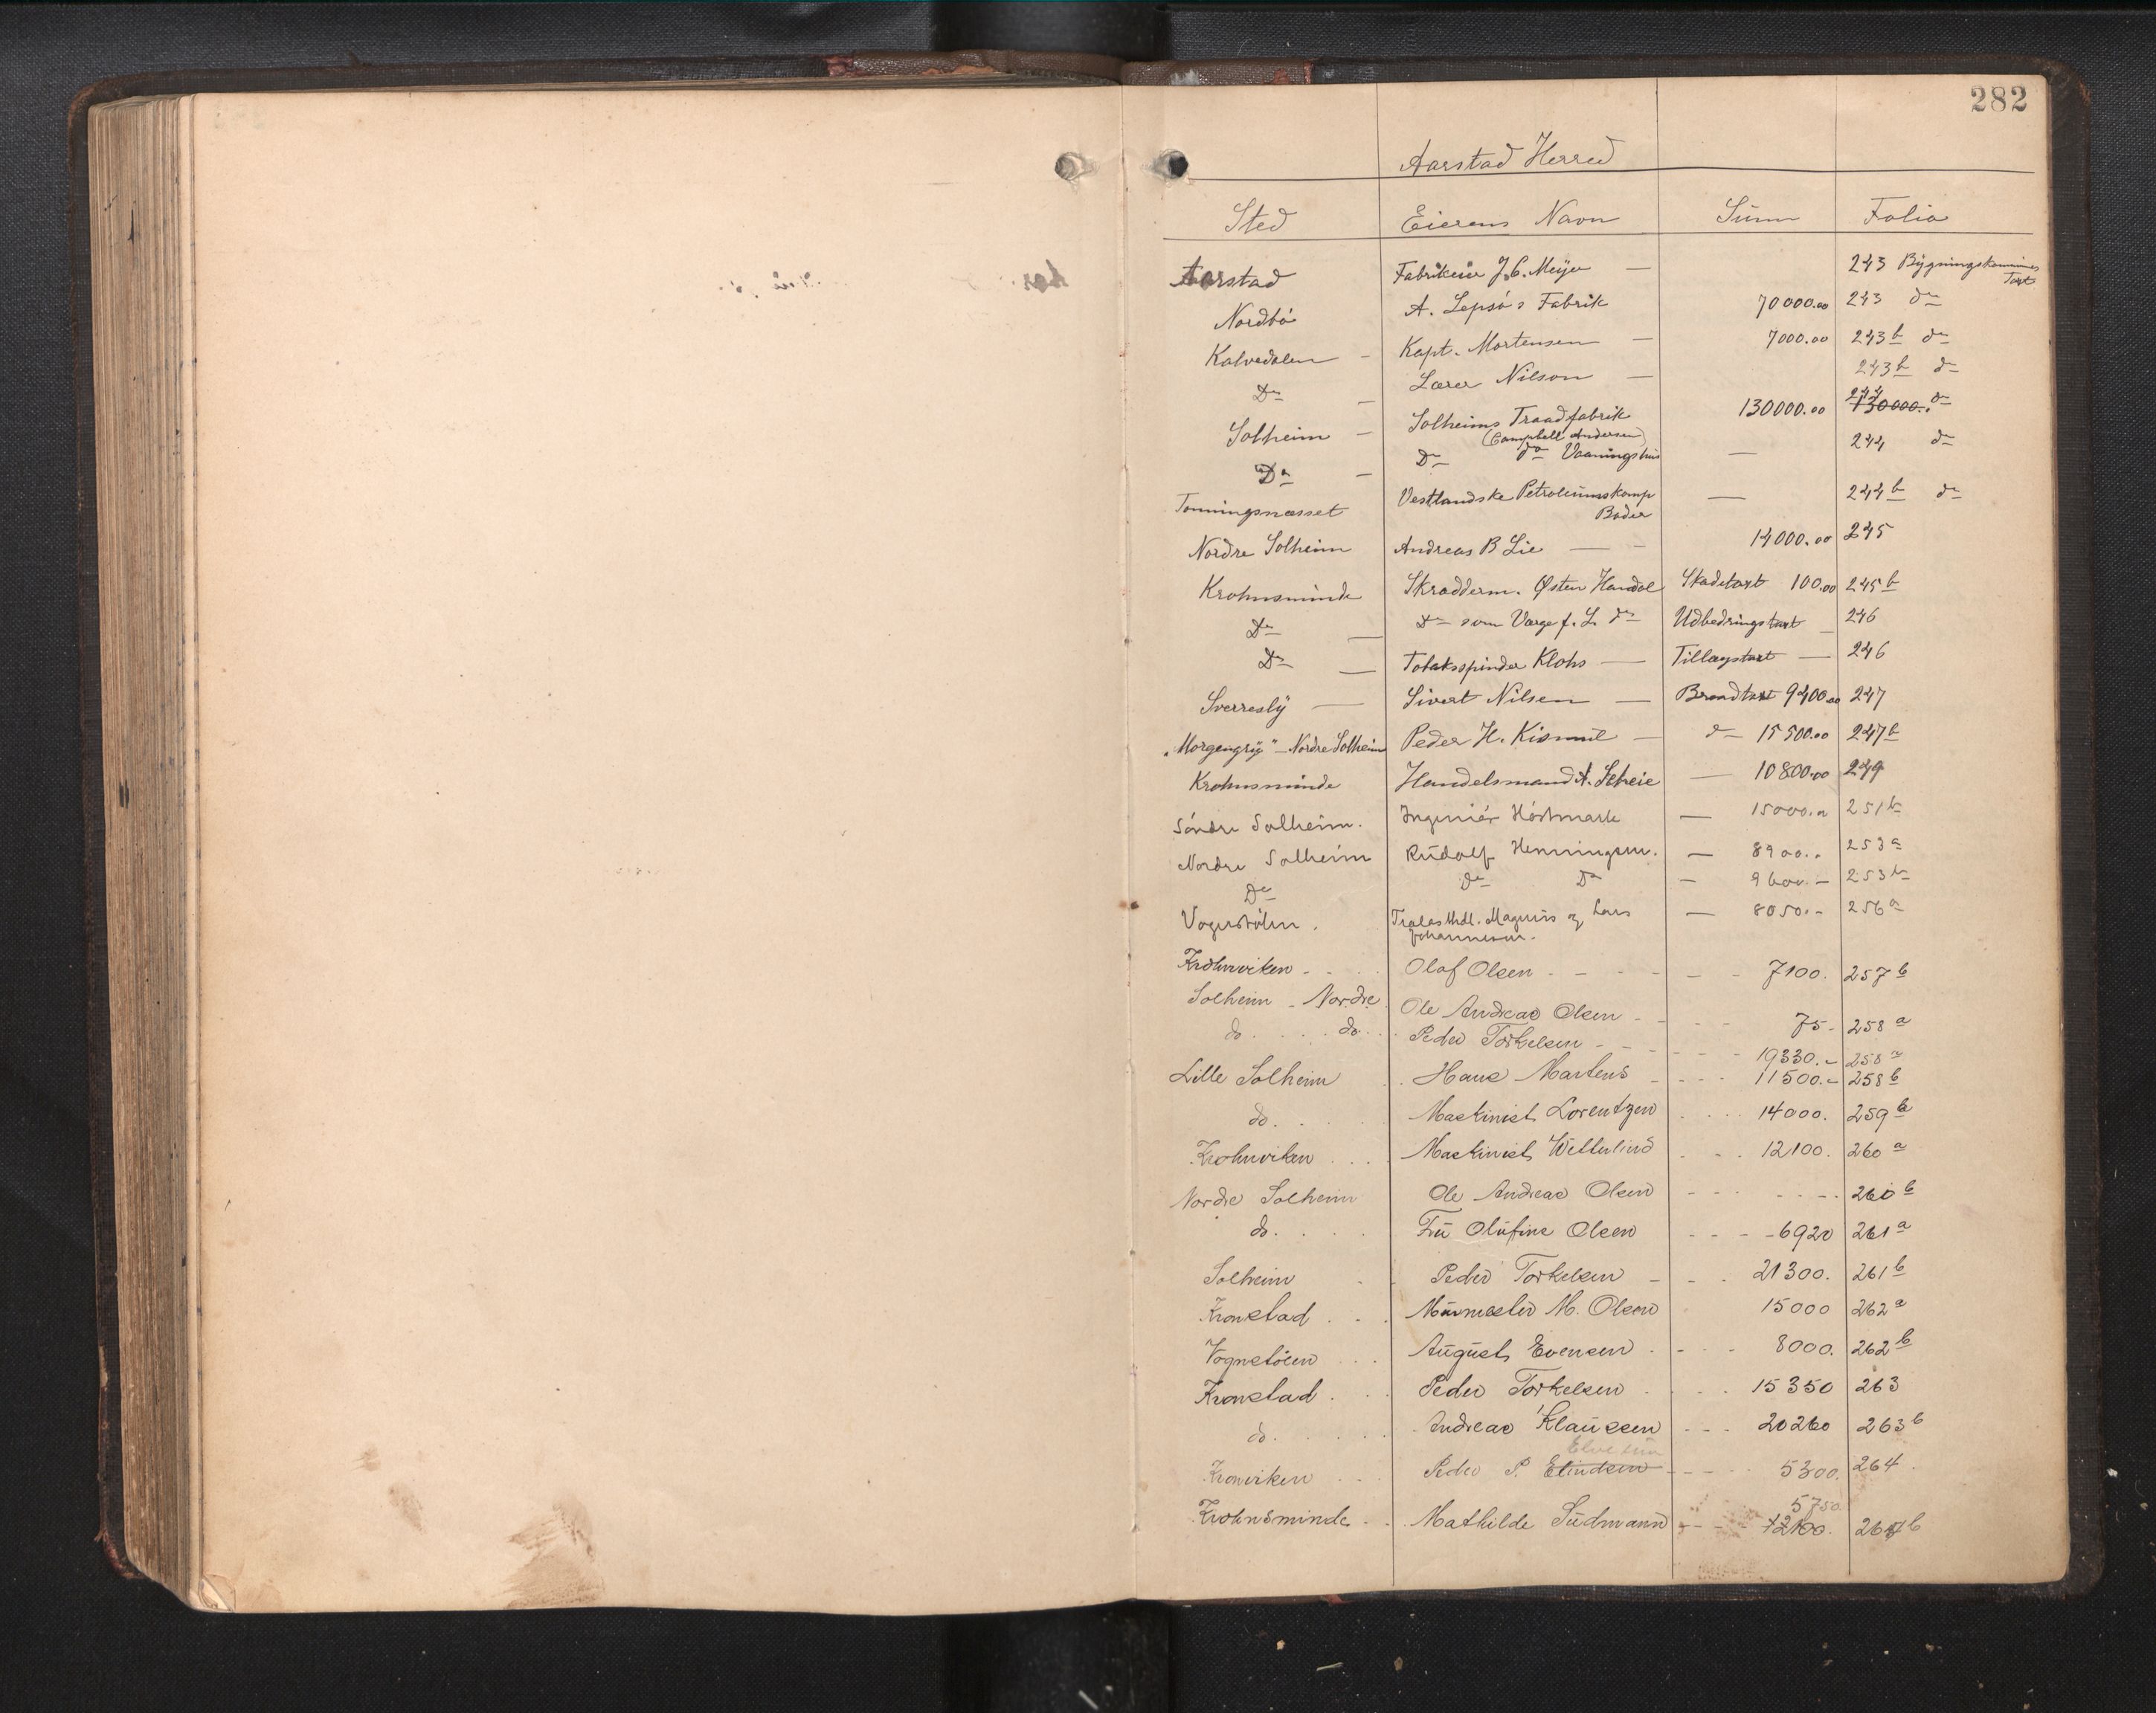 282
Aarstad Herred
Sted Eierens Navn Sum Folio
Aarstad Fabrikeier J. C. Meyer — 243 Bygningskommiss Taxt
Nordbø A. Lepsø's Fabrik 70000.00 243 do
Kalvedalen - Kapt. Mortensen — 7000.00 243b do
Do - Lærer Nilson — 243b do
Solheim - Solheims Traadfabrik 130000.00 244 do
(Campbell Andersen)
Do - Do do Vaaningshus — 244 do
Tonningsnæsset Vestlandske Petroleumskomp — 244b do
Boder
Nordre Solheim Andreas B Lie — - 14000.00 245
Krohnsminde Skrædderm. Østen Handal Skadetaxt 100.00 245b
Do — Do som Værge f. L. do Udbedringstaxt - 246
Do — Tobaksspinder Klohs — Tillægstaxt — 246
Sverresly — Sivert Nilsen — Brandtaxt 9400.00 247
"Morgengry" - Nordre Solheim Peder H. Kismul - do 15500.00 247b
Krohnsminde Handelsmand A. Scheie — 10800.00 249
Søndre Solheim. Ingeniør Hørtmark — 15000.00 251b
Nordre Solheim Rudolf Henningsen. — 8900.. 253a
Do do Do — 9600.- 253b
Vognstølen. Trælasthdl. Magnus og Lars — 8050.- 256a
Johannesen.
Krohnviken - Olaf Olsen - - - 7100. 257b
Solheim - Nordre Ole Andreas Olsen - - - 75- 258a
do . . . . do . . Peder Torkelsen - - - 19330.- 258a
Lille Solheim . . Hans Martens - - - 11500.- 258b
do. . . Maskinist Lorentzen . . . 14000. 259b
Krohnviken . . . Maskinist Wetterlind . - . 12100. 260a
Nordre Solheim Ole Andreas Olsen - - - - - 260b
do. . . . Fru Olufine Olsen - - - 6920 261a
Solheim - Peder Torkelsen - - . 21300. 261b
Kronstad . - . Murmester M. Olsen 15000 262a
Vognstølen . . . August Evensen . - - - 8000. 262b
Kronstad . . . Peder Torkelsen . . . . 15350 263
do. . . . . Andreas Klaussen - - - 20260 263b
Kronviken . . . Peder P. Elindsen - - - - 5300. 264
5750
Krohnsminde . . Mathilde Sudmann - - - - 12100. 264b